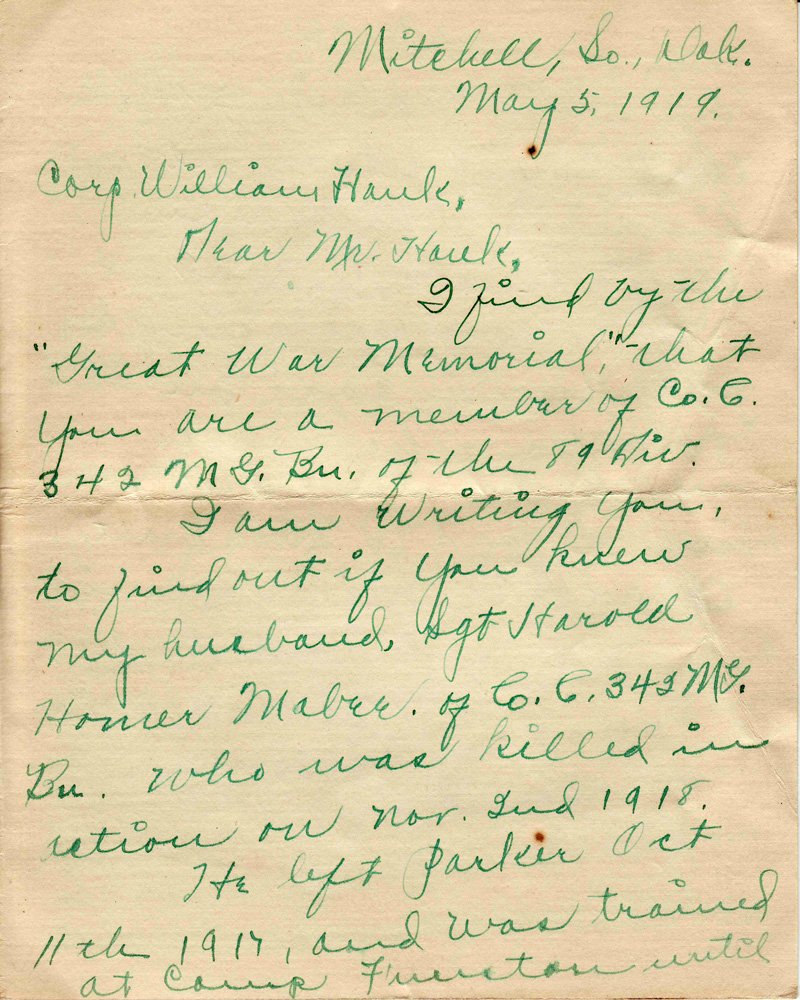 Mitchell, So., Dak.
May 5, 1919.
Corp. William Hauk,
Dear Mr. Hauk,
I find by the
"Great War Memorial," that
you are a member of Co. C.
342 M G. Bn. of the 89 Div.
I am writing you,
to find out if you knew
my husband, Sgt Harold
Homer Mabee. of C. C. 342 M G.
Bn. Who was killed in
action on Nov. 2nd 1918.
He left Parker Oct
11th 1917, and was trained
at Camp Funston until